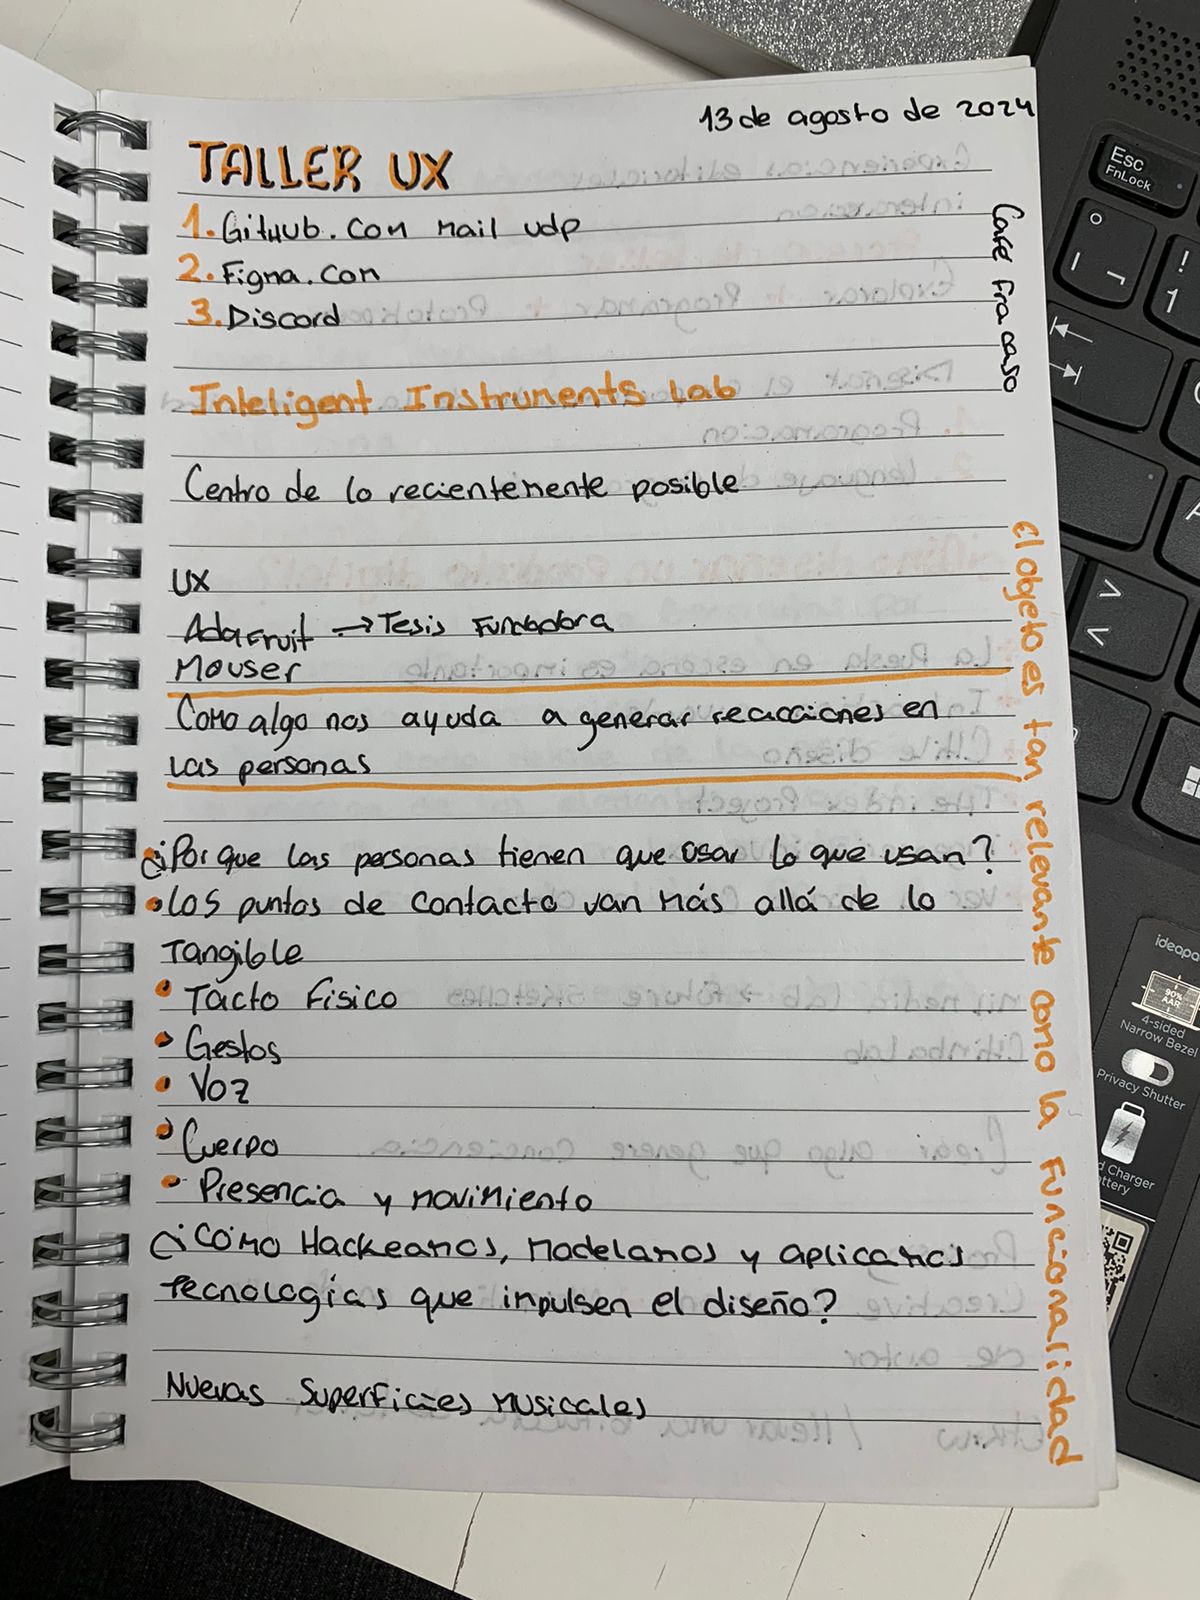 13 de agosto de 2024
TALLER UX
1. GitHub.com mail udp
2. Figma.com
3. Discord
Cafe Fracaso
Inteligent Instruments Lab
Centro de lo recientemente posible
UX
AdaFruit → Tesis Fundadora
Mouser
Como algo nos ayuda a generar reacciones en
las personas
¿Por que las personas tienen que usar lo que usan?
• Los puntos de contacto van más allá de lo
Tangible
• Tacto Fisico
• Gestos
• Voz
• Cuerpo
• Presencia y movimiento
¿Cómo Hackeamos, modelamos y aplicamos
tecnologías que impulsen el diseño?
Nuevas Superficies Musicales
El objeto es tan relevante como la Funcionalidad
Esc
FnLock
!
1
>
<
ideapa
90%
AAR
4-sided
Narrow Bezel
Privacy Shutter
d Charger
ttery